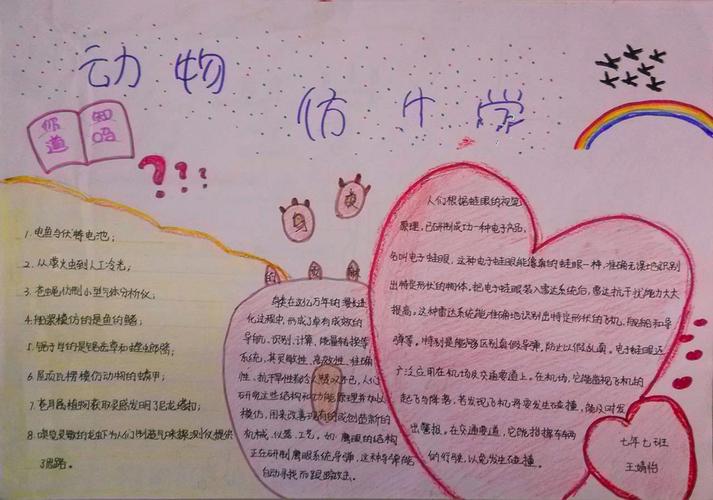 动物
仿生学
你知道吗
???
1. 电鱼与伏特电池;
2. 从萤火虫到人工冷光;
3. 苍蝇仿制小型气体分析仪;
4. 船桨模仿的是鱼的鳍;
5. 锯子学的是
6. 屋顶瓦楞模仿动物的鳞甲;
7. 苍耳属植物获取灵感发明了尼龙搭扣;
8. 嗅觉灵敏的龙虾为人们制造气味探测仪提供
了思路。
鸟类在这亿万年的漫长进
化过程中,形成了卓有成效的
导航、识别、计算、能量转换等
系统,其灵敏性、高效性、准确
性、抗干扰性
研究这些结构和功能原理并加以
模仿,用来改善现有的或创造新的
机械、仪器、工艺。如:鹰眼的结构
正在研制鹰眼系统导弹,这种导弹能
自动寻找而跟踪攻击。
人们根据蛙眼的视觉
原理,已研制成功一种电子产品,
名叫电子蛙眼,这种电子蛙眼能像真的蛙眼一样,准确无误地识别
出特定形状的物体。把电子蛙眼装入雷达系统后,雷达抗干扰能力大大
提高。这种雷达系统能准确地识别出特定形状的飞机、舰船和导
弹等。特别是能够区别真假导弹,防止以假乱真。电子蛙眼还
广泛应用在机场及交通要道上。在机场,它能监视飞机的
起飞与降落,若发现飞机将要发生碰撞,能及时发
出警报。在交通要道,它能指挥车辆
的行驶,以免发生碰撞。
七年七班
王婧怡